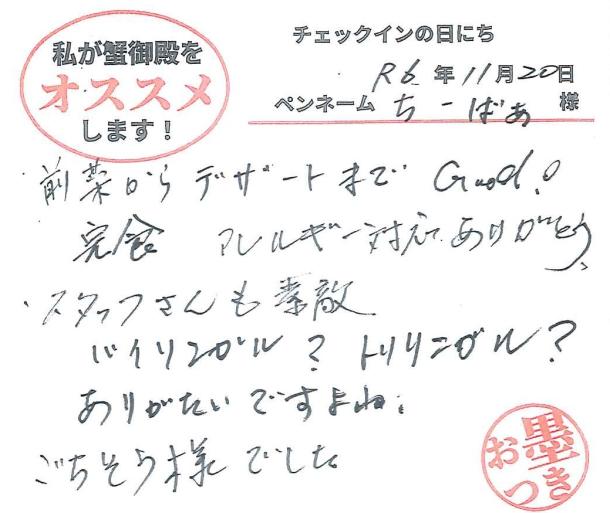 私が蟹御殿を
オススメ
します!
チェックインの日にち
R6年11月20日
ペンネーム ちーばぁ 様
前菜からデザートまで Good!
完食 アレルギー対応ありがとう、
・スタッフさんも素敵
バイリンガル? トリリンガル?
ありがたいですよね。
ごちそう様でした
お墨つき